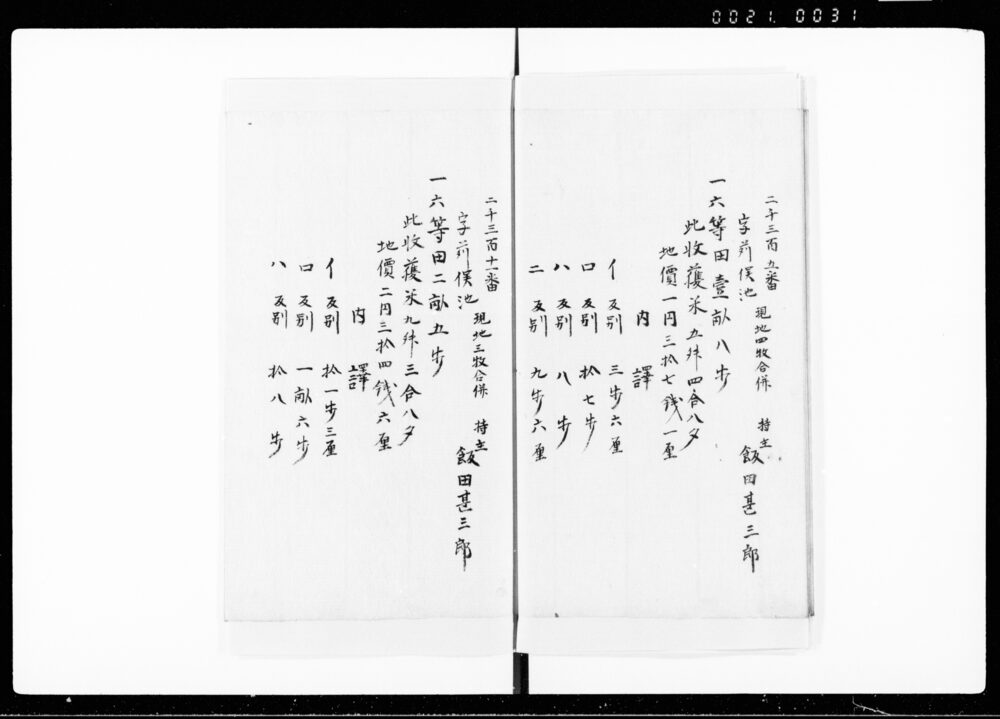 0021 0031
二千三百五番
字苅俣池 現地四牧合併 持主 飯田甚三郎
一六等田壹畝八歩
此收獲米五舛四合八夕
地價一円三拾七銭一厘
内譯
イ 反別 三歩六厘
ロ 反別 拾七歩
ハ 反別 八歩
ニ 反別 九歩六厘
二千三百十一番
字苅俣池 現地三牧合併 持主 飯田甚三郎
一六等田二畝五歩
此收獲米九舛三合八夕
地價二円三拾四銭六厘
内譯
イ 反別 拾一歩三厘
ロ 反別 一畝六歩
ハ 反別 拾八歩